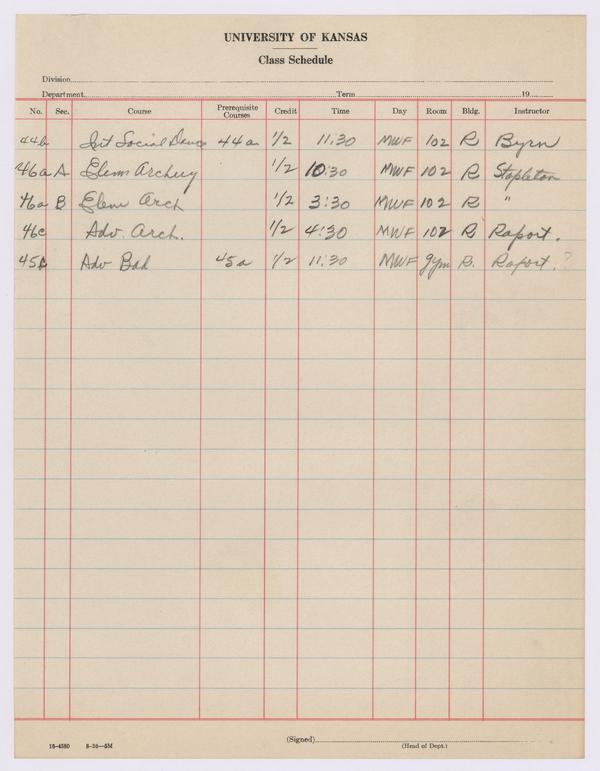 UNIVERSITY OF KANSAS
Class Schedule
Division
Department Term 19
No. Sec. Course Prerequisite Courses Credit Time Day Room Bldg. Instructor
44b Int Social Dance 44a 1/2 11:30 MWF 102 R Byrn
46a A Elem Archery 1/2 10:30 MWF 102 R Stapleton
46a B Elem Arch 1/2 3:30 MWF 102 R "
46c Adv. Arch. 1/2 4:30 MWF 102 R Raport.
Adv Bad 45a 1/2 11:30 MWF gym R. Raport.?
(Signed)
16-4380 8-30—5M (Head of Dept.)